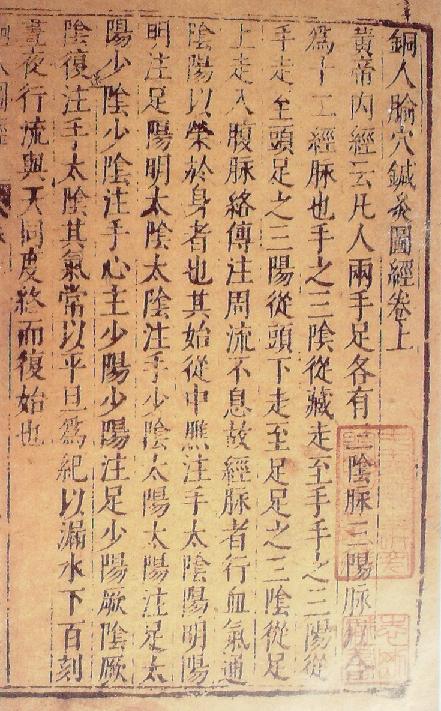 銅人腧穴鍼灸圖經卷上
黃帝內經云凡人兩手足各有三陰脉三陽脉以合
為十二經脉也手之三陰從藏走至手手之三陽從
手走至頭足之三陽從頭下走至足足之三陰從足
上走入腹脉絡傳注周流不息故經脉者行血氣通
陰陽以榮於身者也其始從中膲注手太陰陽明陽
明注足陽明太陰太陰注手少陰太陽太陽注足太
陽少陰少陰注手心主少陽少陽注足少陽厥陰厥
陰復注手太陰其氣常以平旦為紀以漏水下百刻
晝夜行流與天同度終而復始也